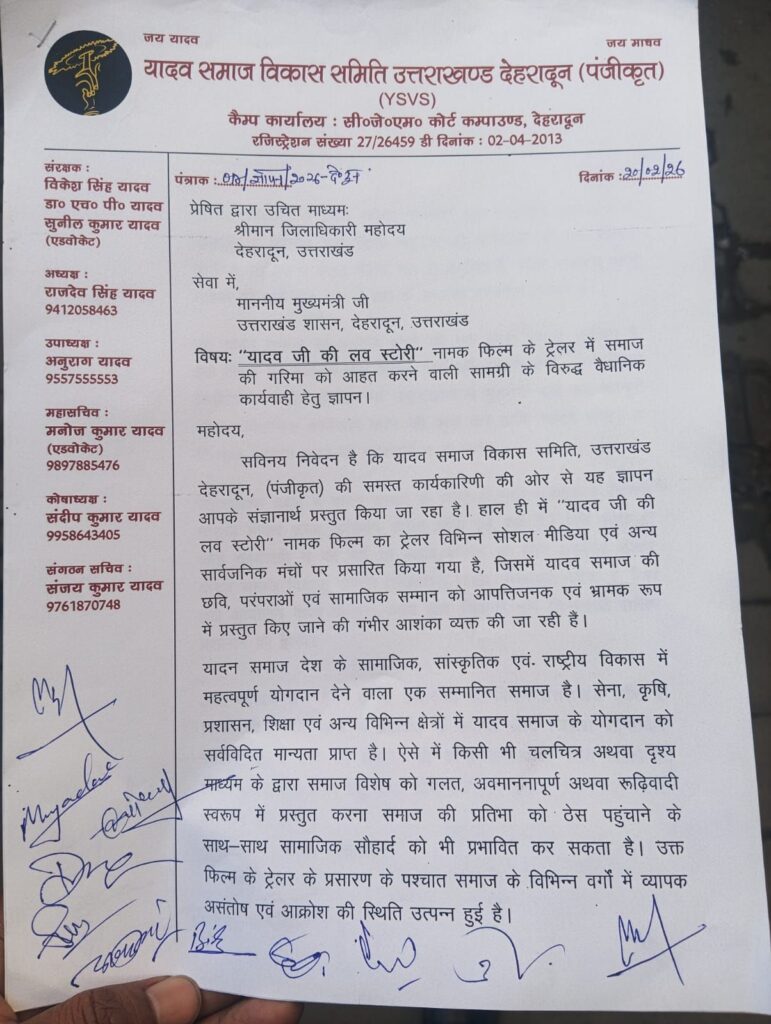 जय यादव
जय माधव
यादव समाज विकास समिति उत्तराखण्ड देहरादून (पंजीकृत)
(YSVS)
कैम्प कार्यालय : सी०जे०एम० कोर्ट कम्पाउण्ड, देहरादून
रजिस्ट्रेशन संख्या 27/26459 डी दिनांक : 02-04-2013
संरक्षक :
विकेश सिंह यादव
डा० एच० पी० यादव
सुनील कुमार यादव
(एडवोकेट)
अध्यक्ष :
राजदेव सिंह यादव
9412058463
उपाध्यक्ष :
अनुराग यादव
9557555553
महासचिव :
मनोज कुमार यादव
(एडवोकेट)
9897885476
कोषाध्यक्ष :
संदीप कुमार यादव
9958643405
संगठन सचिव :
संजय कुमार यादव
9761870748
पंत्राक :
दिनांक : 20/02/26
प्रेषित द्वारा उचित माध्यमः
श्रीमान जिलाधिकारी महोदय
देहरादून, उत्तराखंड
सेवा में,
माननीय मुख्यमंत्री जी
उत्तराखंड शासन, देहरादून, उत्तराखंड
विषयः "यादव जी की लव स्टोरी" नामक फिल्म के ट्रेलर में समाज
की गरिमा को आहत करने वाली सामग्री के विरुद्ध वैधानिक
कार्यवाही हेतु ज्ञापन।
महोदय,
सविनय निवेदन है कि यादव समाज विकास समिति, उत्तराखंड
देहरादून, (पंजीकृत) की समस्त कार्यकारिणी की ओर से यह ज्ञापन
आपके संज्ञानार्थ प्रस्तुत किया जा रहा है। हाल ही में "यादव जी की
लव स्टोरी" नामक फिल्म का ट्रेलर विभिन्न सोशल मीडिया एवं अन्य
सार्वजनिक मंचों पर प्रसारित किया गया है, जिसमें यादव समाज की
छवि, परंपराओं एवं सामाजिक सम्मान को आपत्तिजनक एवं भ्रामक रूप
में प्रस्तुत किए जाने की गंभीर आशंका व्यक्त की जा रही हैं।
यादन समाज देश के सामाजिक, सांस्कृतिक एवं राष्ट्रीय विकास में
महत्वपूर्ण योगदान देने वाला एक सम्मानित समाज है। सेना, कृषि,
प्रशासन, शिक्षा एवं अन्य विभिन्न क्षेत्रों में यादव समाज के योगदान को
सर्वविदित मान्यता प्राप्त है। ऐसे में किसी भी चलचित्र अथवा दृश्य
माध्यम के द्वारा समाज विशेष को गलत, अवमाननापूर्ण अथवा रूढ़िवादी
स्वरूप में प्रस्तुत करना समाज की प्रतिभा को ठेस पहुंचाने के
साथ-साथ सामाजिक सौहार्द को भी प्रभावित कर सकता है। उक्त
फिल्म के ट्रेलर के प्रसारण के पश्चात समाज के विभिन्न वर्गों में व्यापक
असंतोष एवं आक्रोश की स्थिति उत्पन्न हुई है।